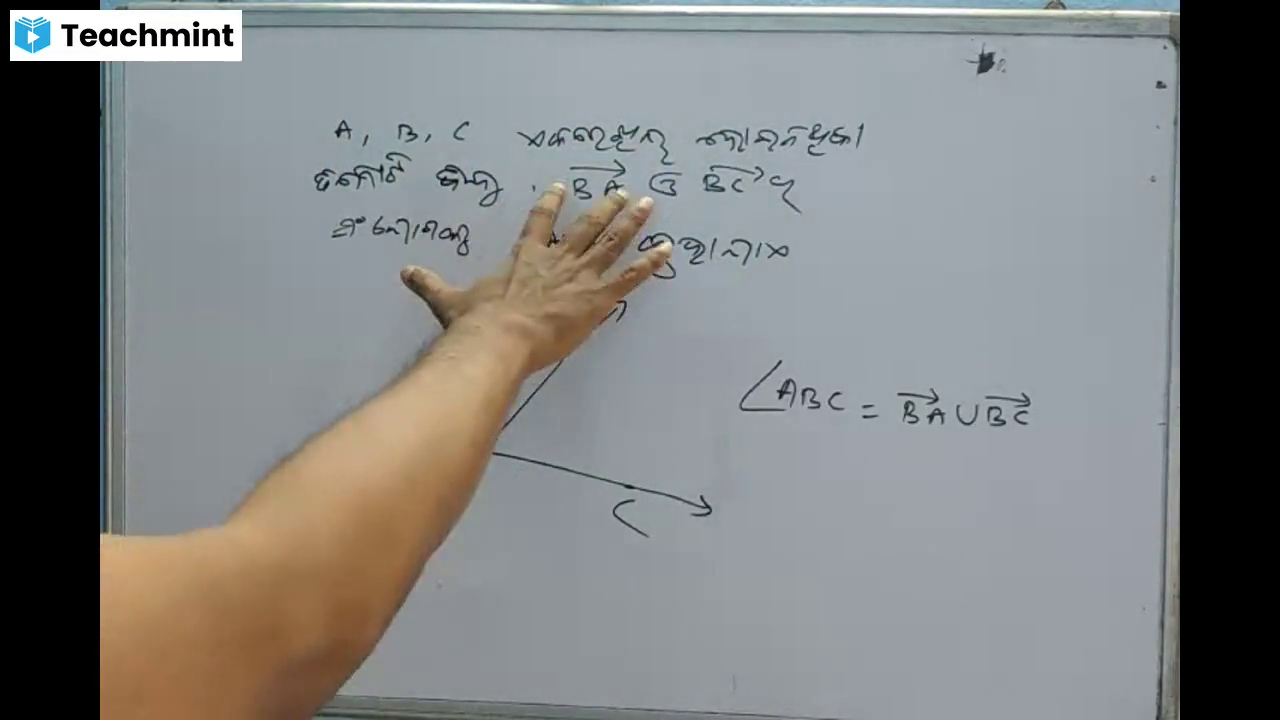 Teachmint
A, B, C ଏକରେଖୀୟ
ତିନୋଟି ବିନ୍ଦୁ . BA ଓ BC ର
ସଂଯୋଗକୁ କୁହାଯାଏ
∠ABC = BA ∪ BC
C